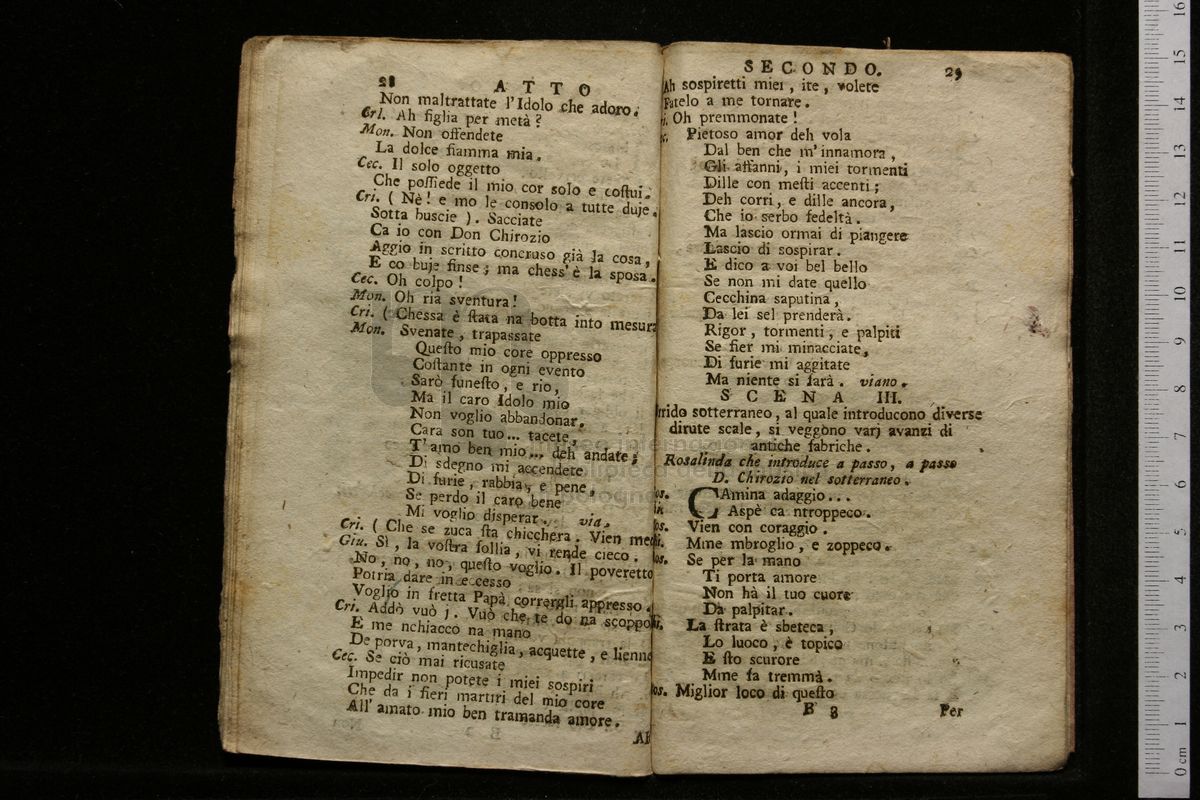 28 ATTO
Non maltrattate l'Idolo che adoro.
Crl. Ah figlia per metà?
Mon. Non offendete
La dolce fiamma mia.
Cec. Il solo oggetto
Che possiede il mio cor solo e costui.
Cri. ( Nè! e mo le consolo a tutte duje.
Sotta buscie ). Sacciate
Ca io con Don Chirozio
Aggio in scritto concruso già la cosa,
E co buje finse; ma chess'è la sposa.
Cec. Oh colpo!
Mon. Oh ria sventura!
Cri. ( Chessa è stata na botta into mesura
Mon. Svenate, trapassate
Questo mio core oppresso
Costante in ogni evento
Sarò funesto, e rio,
Ma il caro Idolo mio
Non voglio abbandonar.
Cara son tuo... tacete,
T'amo ben mio... deh andate;
Di sdegno mi accendete
Di furie, rabbia, e pene,
Se perdo il caro bene
Mi voglio disperar. via.
Cri. ( Che se zuca sta chicchera. Vien me
Giu. Sì, la vostra follia, vi rende cieco.
No, no, no, questo voglio. Il poveretto
Potria dare in eccesso
Voglio in fretta Papà corrergli appresso.
Cri. Addò vuò j. Vuò che te do na scoppo
E me nchiacco na mano
De porva, mantechiglia, acquette, e lienne
Cec. Se ciò mai ricusate
Impedir non potete i miei sospiri
Che da i fieri martiri del mio core
All'amato mio ben tramanda amore.
Ah
SECONDO. 29
Ah sospiretti miei, ite, volete
Fatelo a me tornare.
Oh premmonate!
Pietoso amor deh vola
Dal ben che m'innamora,
Gli affanni, i miei tormenti
Dille con mesti accenti;
Deh corri, e dille ancora,
Che io serbo fedeltà.
Ma lascio ormai di piangere
Lascio di sospirar.
E dico a voi bel bello
Se non mi date quello
Cecchina saputina,
Da lei sel prenderà.
Rigor, tormenti, e palpiti
Se fier mi minacciate,
Di furie mi aggitate
Ma niente si farà. viano.
SCENA III.
rrido sotterraneo, al quale introducono diverse
dirute scale, si veggono varj avanzi di
antiche fabriche.
Rosalinda che introduce a passo, a passo
D. Chirozio nel sotterraneo.
os. CAmina adaggio...
Aspè ca ntroppeco.
os. Vien con coraggio.
Mme mbroglio, e zoppeco.
os. Se per la mano
Ti porta amore
Non hà il tuo cuore
Da palpitar.
La strata è sbeteca,
Lo luoco, è topico
E sto scurore
Mme fa tremmà.
os. Miglior loco di questo
B 3 Per